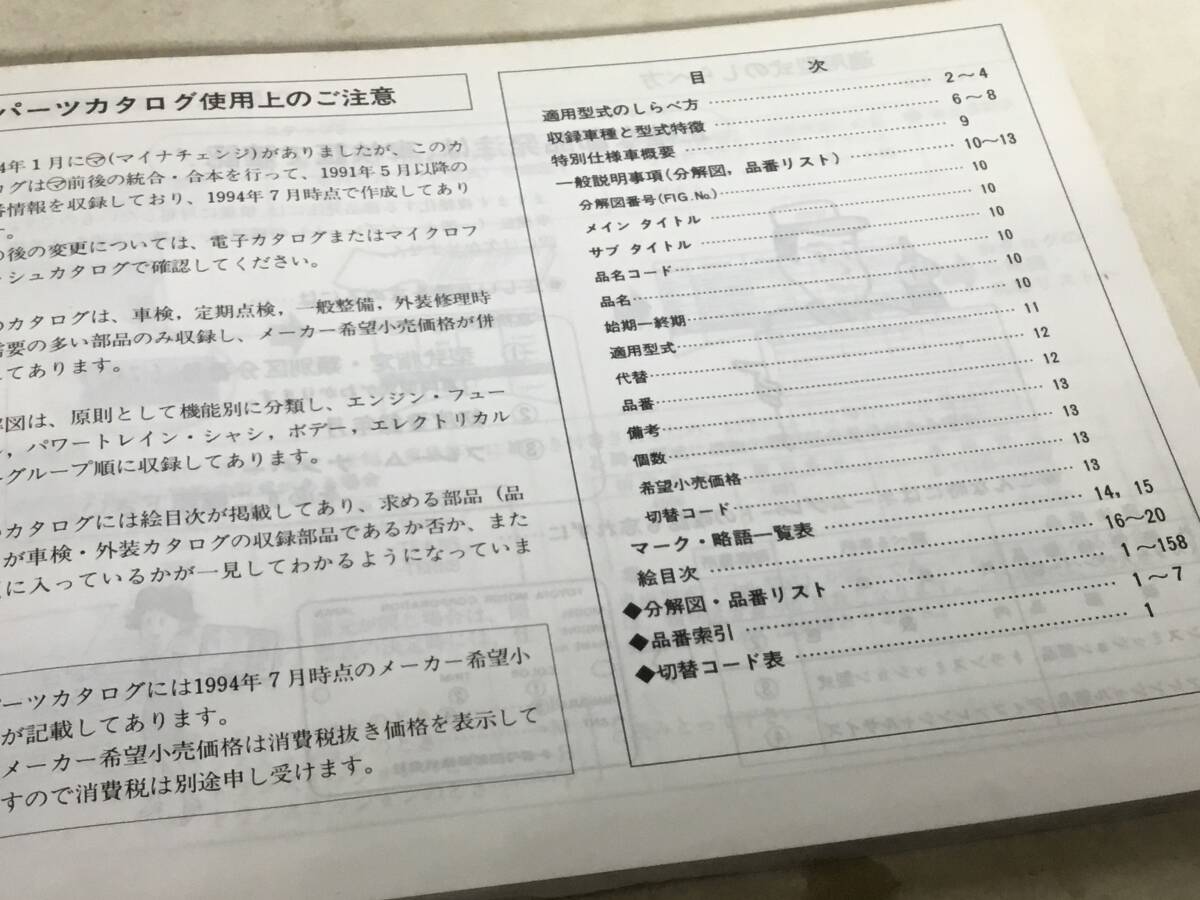 パーツカタログ使用上のご注意
4年1月に㋮(マイナチェンジ)がありましたが、このカ
ログは㋮前後の統合・合本を行って、1991年5月以降の
情報を収録しており、1994年7月時点で作成してあり
す。
の後の変更については、電子カタログまたはマイクロフ
シュカタログで確認してください。
のカタログは、車検，定期点検，一般整備，外装修理時
需要の多い部品のみ収録し、メーカー希望小売価格が併
してあります。
解図は、原則として機能別に分類し、エンジン・フュー
，パワートレイン・シャシ，ボデー，エレクトリカル
グループ順に収録してあります。
のカタログには絵目次が掲載してあり、求める部品（品
が車検・外装カタログの収録部品であるか否か、また
に入っているかが一見してわかるようになっていま
パーツカタログには1994年7月時点のメーカー希望小
が記載してあります。
メーカー希望小売価格は消費税抜き価格を表示して
すので消費税は別途申し受けます。
目 次
適用型式のしらべ方 2〜4
収録車種と型式特徴 6〜8
特別仕様車概要 9
一般説明事項(分解図，品番リスト) 10〜13
分解図番号(FIG.No.) 10
メイン タイトル 10
サブ タイトル 10
品名コード 10
品名 10
始期一終期 10
適用型式 11
代替 12
品番 12
備考 13
個数 13
希望小売価格 13
切替コード 13
マーク・略語一覧表 14，15
絵目次 16〜20
◆分解図・品番リスト 1〜158
◆品番索引 1〜7
◆切替コード表 1